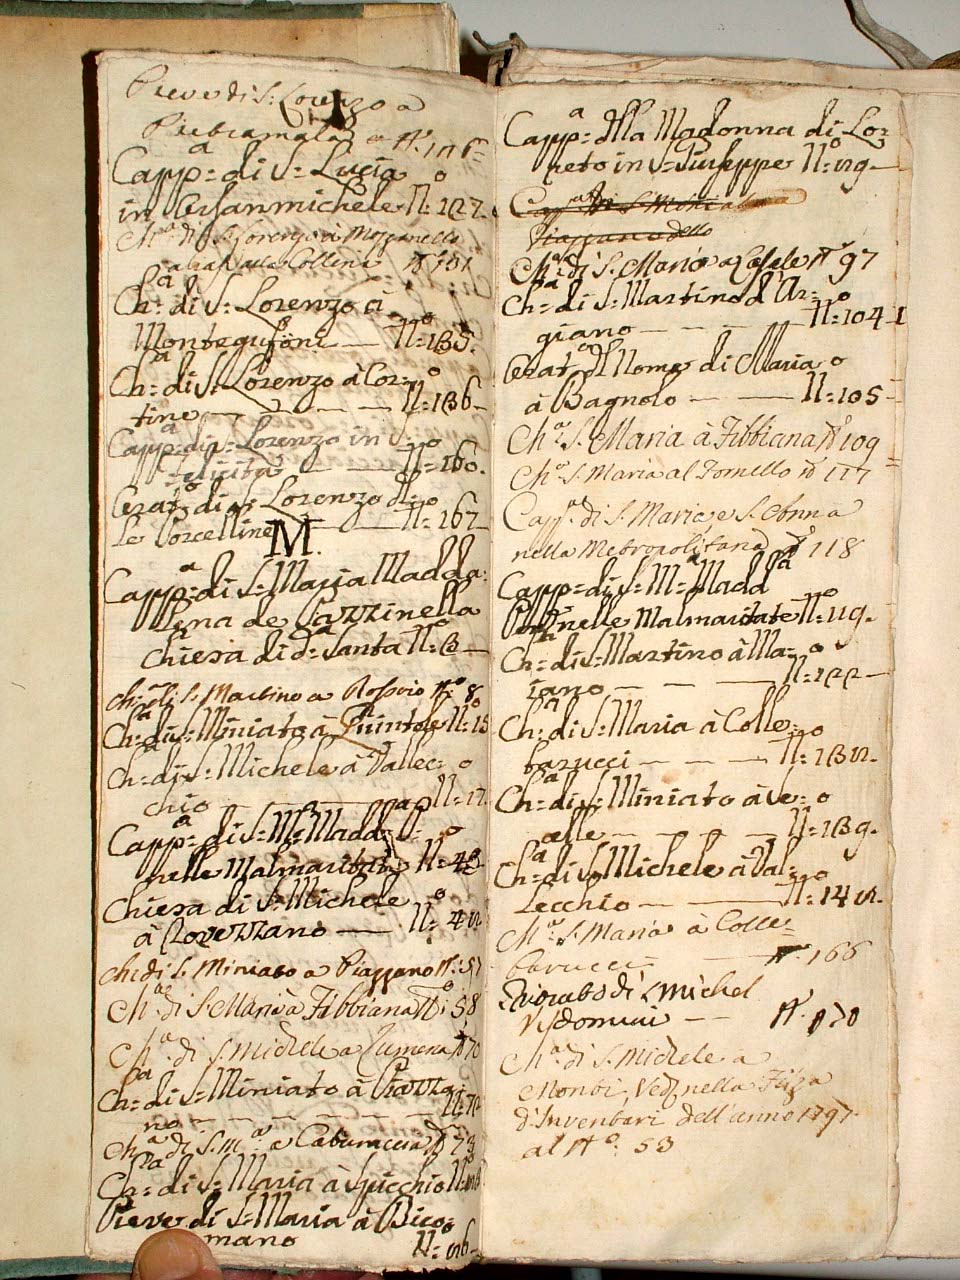 Pieve di S: Lorenzo a
Pietramala N.o 106
L
Capp.a di S: Lucia
in Orsanmichele N.o 127.
Ch.a di S. Lorenzo à Mozzanello
alla Collina N.o 101
Ch.a di S: Lorenzo à
Montegufoni — N.o 135.
Ch.a di S: Lorenzo à Cor-
tine — — — N.o 136
Capp.a di S: Lorenzo in S.
Felicita — — N.o 160.
Lorenzo
le Porcelline — N.o 167
M.
Capp.a di S: Maria Madda:
lena de
Chiesa di d.a Santa N.o 3
Ch.a di S. Martino a N.o 8
Ch.a di S: Miniato à Quintole N.o 15
Ch.a di S: Michele à Vallec-
chio — — N.o 17
Capp.a di S: M.a Madd.a
nelle Malmaritate N.o
Chiesa di S: Michele
à Rovezzano — N.o 42
Ch: di S. Miniato a Piazzano N.o 57
Ch.a di S. Maria à Fibbiana N.o 58
Ch.a di S. Michele a N.o 70
Ch.a di S: Miniato à Piazza-
no — — — — N.o
Ch.a di S. M.a a N.o 73
Ch.a di S: Maria à Spicchio N.o
Pieve di S: Maria à Bico-
mano N.o
Capp.a dlla Madonna di Lo-
reto in S: Giuseppe N.o 29
Piazzano
Ch.a di S. Maria a Casale N.o 97
Ch.a di S: Martino d'Ar-
giano — — — N.o 104
d. Nome di Maria
à Bagnolo — — N.o 105
Ch.a S. Maria à Fibbiana N.o 109
Ch.a S. Maria al Tomello N.o 117
Capp.a di S. Maria e S. Anna
nella Metropolitana N.o 118
Capp.a di S: M.a Madd.a
nelle Malmaritate N.o 119.
Ch.a di S: Martino à Ma-
iano — — — N.o 122
Ch.a di S: Maria à Colle-
barucci — — — N.o 132.
Ch.a di S: Miniato à Ce-
elle — — — N.o 139.
Ch.a di S: Michele à Val-
lecchio — — N.o 142.
Ch.a S. Maria à Colle-
barucci — N.o 166
di S. Michel
Visdomini — — N.o 170
Ch.a di S. Michele a
Monti, Ved. nella Filza
d'Inventari dell'anno 1797
al N.o 53